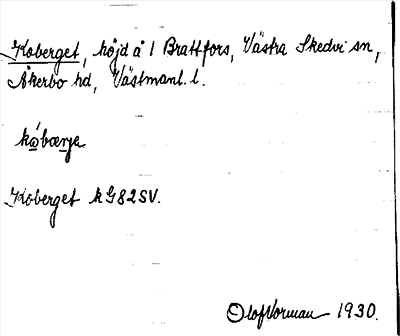 Koberget, höjd å 1 Brattfors, Västra Skedvi sn,
Åkerbo hd, Västmanl. l.
kobærja
Koberget kG82SV.
Olof Vorman 1930.